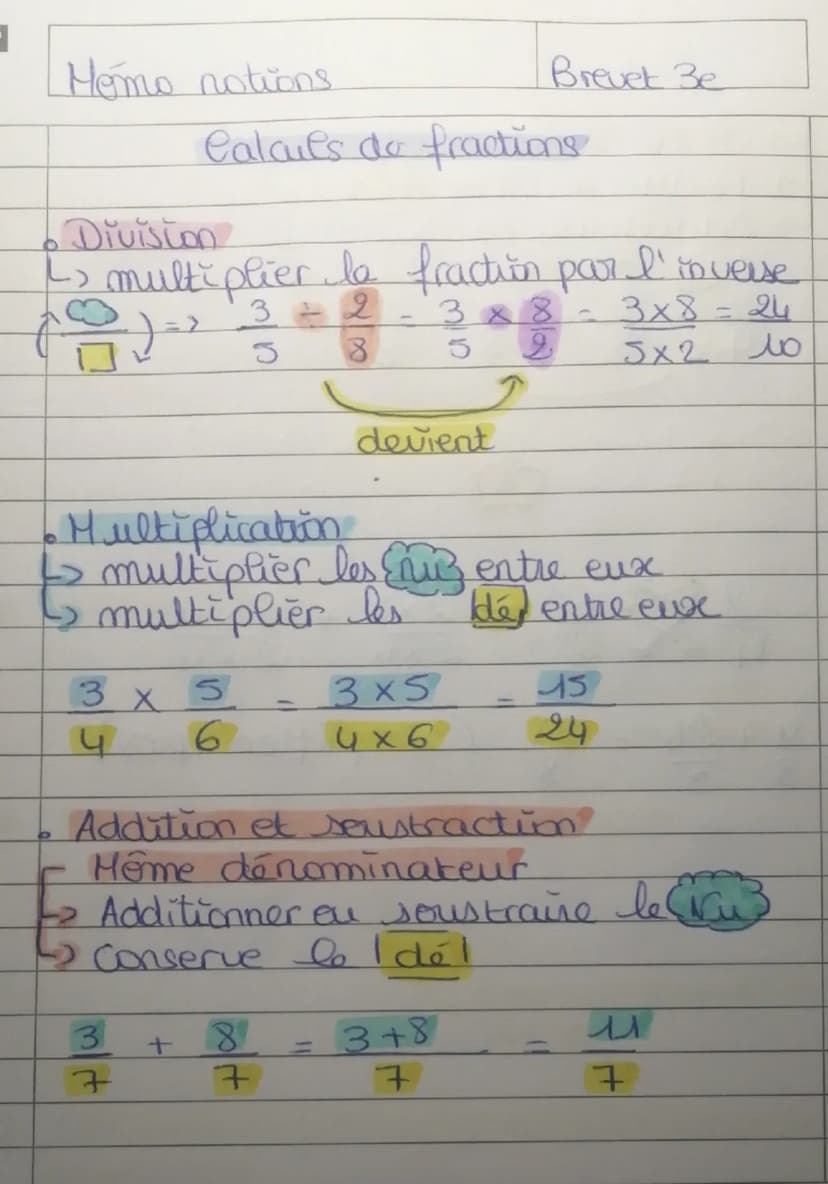 Mémo notions
Brevet 3e
Calculs de fractions
• Division
↳ multiplier la fraction par l'inverse
=> 3/5 ÷ 2/8 = 3/5 × 8/2 = 3×8/5×2 = 24/10
devient
• Multiplication
↳ multiplier les nu entre eux
↳ multiplier les dé entre eux
3/4 × 5/6 = 3×5/4×6 = 15/24
• Addition et soustraction
Même dénominateur
↳ Additionner ou soustraire le Nu
↳ Conserve le dé
3/7 + 8/7 = 3+8/7 = 11/7